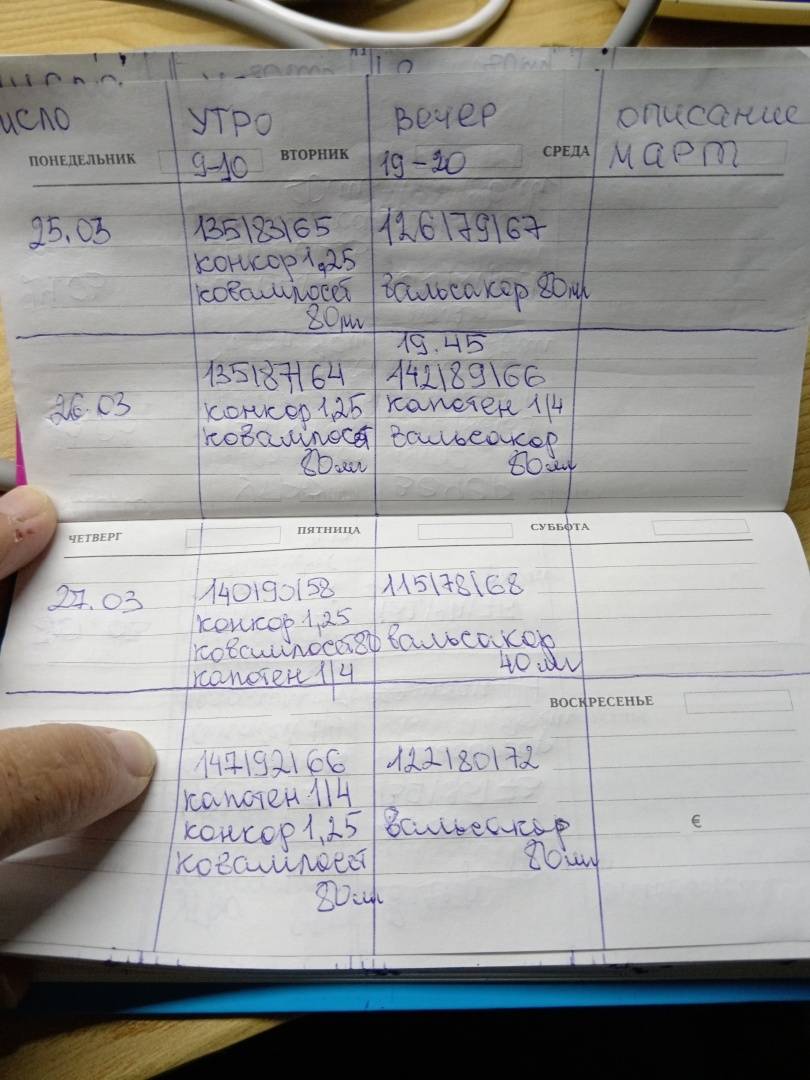 исло УТРО Вечер описание
ПОНЕДЕЛЬНИК 9-10 ВТОРНИК 19-20 СРЕДА МАРТ
25.03 135/83/65 126/79/67
конкор 1,25
ковампосет вальсакор 80мг
80мг
19.45
135/87/64 142/89/66
26.03 конкор 1,25 капотен 1/4
ковампосет вальсакор
80мг 80мг
ЧЕТВЕРГ ПЯТНИЦА СУББОТА
27.03 140/90/58 115/78/68
конкор 1,25
ковампосет80 вальсакор
капотен 1/4 40мг
ВОСКРЕСЕНЬЕ
147/92/66 122/80/72
капотен 1/4
конкор 1,25 вальсакор €
ковампосет 80мг
80мг